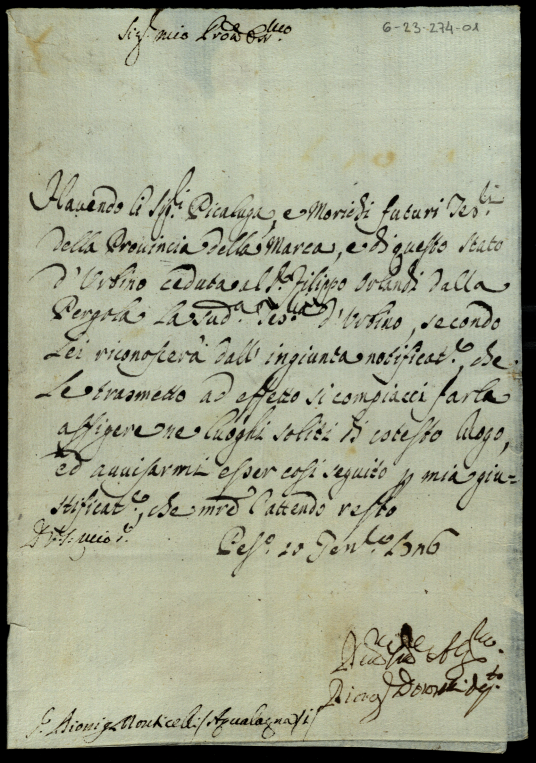 6-23-274-01
Sig.r mio Prõn
Havendo li Sig.ri Picaluga, e Moriedi futuri Tes.ri
della Provincia della Marca, e di questo stato
d'Urbino ceduta al S.r Filippo Orlandi dalla
Pergola la sud.a Tes.ria d'Urbino, secondo
Lei riconoscerà dall'ingiunta notificat.e, che
Le trasmetto ad effetto si compiacci farla
affigere ne luoghi soliti di cotesto luogo,
ed avvisarmi esser così seguito p mia giu=
stificat.e, che mre l'attendo resto
Pes.o 10 Gen.o
S.r Dionigi Monticelli / Acqualagna